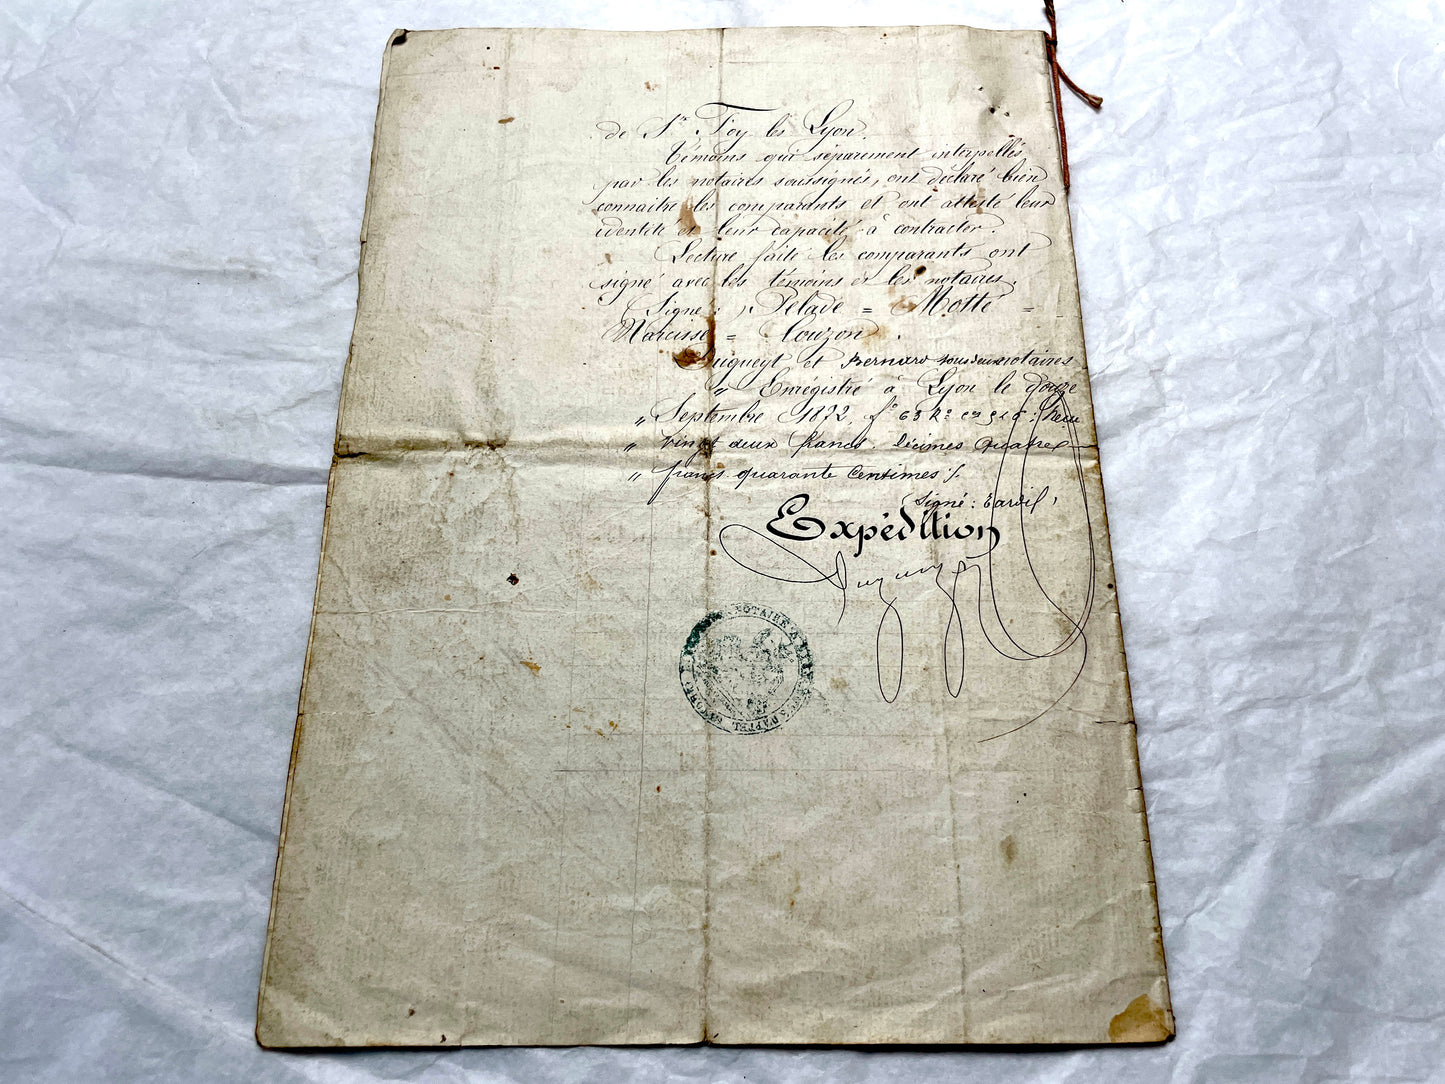 de Ste Foy les Lyon.
Témoins qui séparément interpellés
par les notaires soussignés, ont déclaré bien
connaitre les comparants et ont attesté leur
identité et leur capacité à contracter.
Lecture faite les comparants ont
signé avec les témoins et les notaires.
(Signé:) Pelade = Motte =
Narcisse = Couzon.
Dugueyt et Bernard tous deux notaires
„ Enrégistré à Lyon le douze
„ Septembre 1872, fo 63 Ro cs 5 à 6: Recu
„ vingt deux francs. Décimes quatre
„ francs quarante centimes ./.
Signé: Tardif,
Expédition
Dugueyt
NOTAIRE À LYON COUR D'APPEL